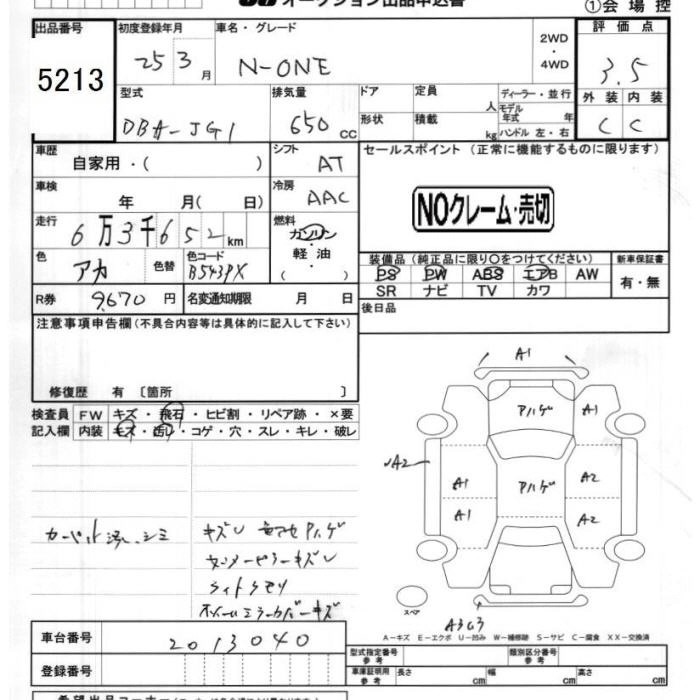 オークション出品申込書
①会場控
出品番号
5213
初度登録年月
25 3月
車名・グレード
N-ONE
2WD
・
4WD
評価点
3.5
型式
DBA-JG1
排気量
650cc
ドア
定員 人
ディーラー・並行
モデル年式 年
形状
積載 kg
ハンドル 左・右
外装 内装
C C
車歴
自家用・( )
シフト
AT
セールスポイント（正常に機能するものに限ります）
車検
年 月( 日)
冷房
AAC
NOクレーム・売切
走行
6万3千652km
燃料
ガソリン・
軽油・
( )
色
アカ
色替
色コード
B543PX
装備品（純正品に限り○をつけてください）
新車保証書
PS PW ABS エアB AW
SR ナビ TV カワ
有・無
R券
9,670円
名変通知期限 月 日
後日品
注意事項申告欄（不具合内容等は具体的に記入して下さい）
修復歴 有〔箇所 〕
検査員記入欄
FW キズ・飛石・ヒビ割・リペア跡・×要
内装 キズ・汚レ・コゲ・穴・スレ・キレ・破レ
A1
Pハゲ
A1
A2
A1
Pハゲ
A2
A1
A2
スペア
カーペット 汚レ シミ
キズU Pハゲ
ライトクモリ
ドアミラーカバーキズ
A-キズ E-エクボ U-凹み W-補修跡 S-サビ C-腐食 XX-交換済
車台番号
2013040
登録番号
型式指定番号
参考
類別区分番号
参考
車庫証明用
参考
長さ cm
幅 cm
高さ cm